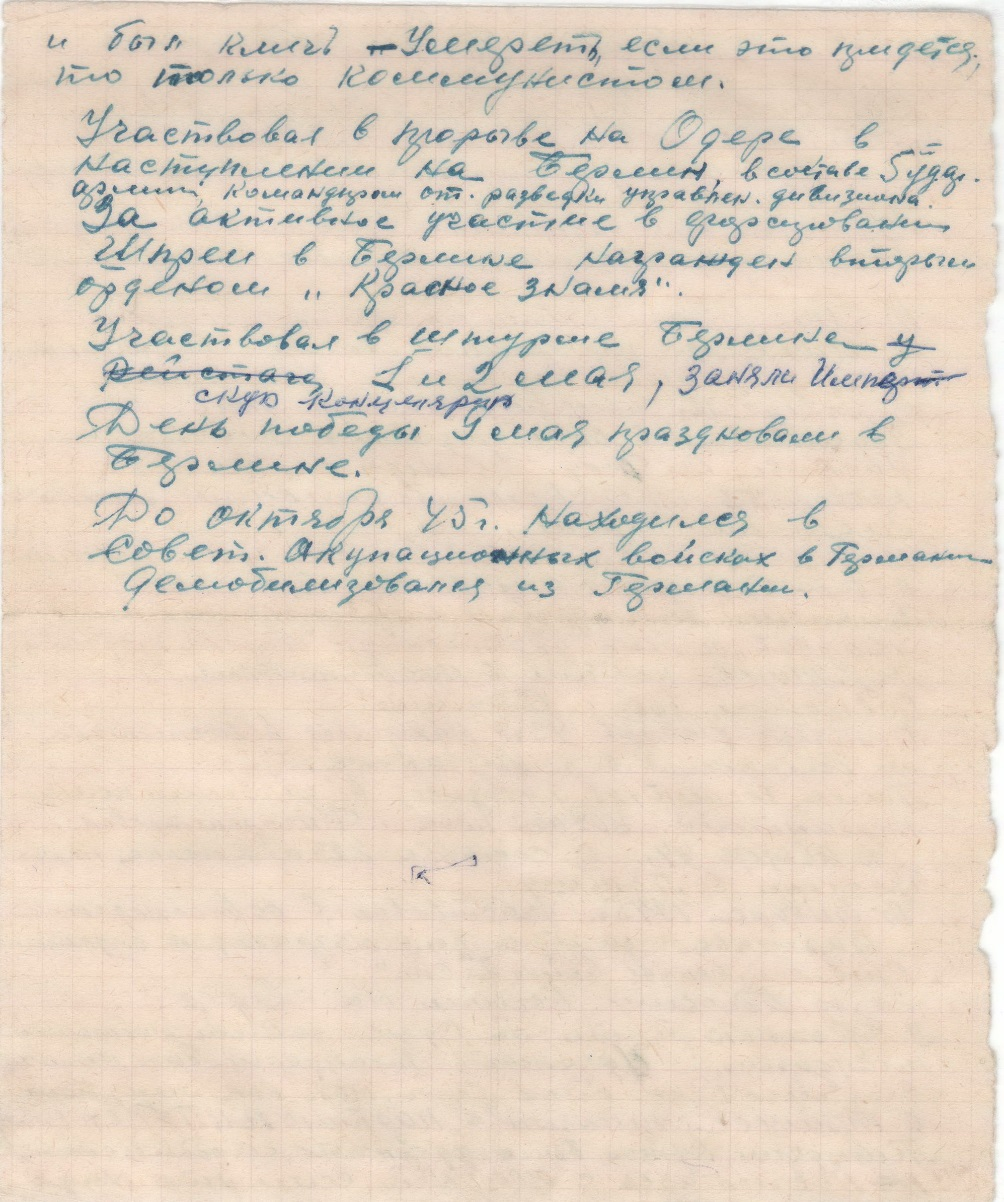 и был кличь – Умереть, если это придется,
то только коммунистом.
Участвовал в прорыве на Одере в
наступлении на Берлин, в составе 5 удар.
армии, командиром от. разведки управлен. дивизиона.
За активное участие в форсировании
Шпреи в Берлине награжден вторым
орденом „Красное знамя“.
Участвовал в штурме Берлина у
Рейстага 1 и 2 мая, заняли Импер
скую концелярию
День победы 9 мая праздновали в
Берлине.
До октября 45 г. находился в
Совет. Окупационных войсках в Германии
Демобилизовался из Германии.